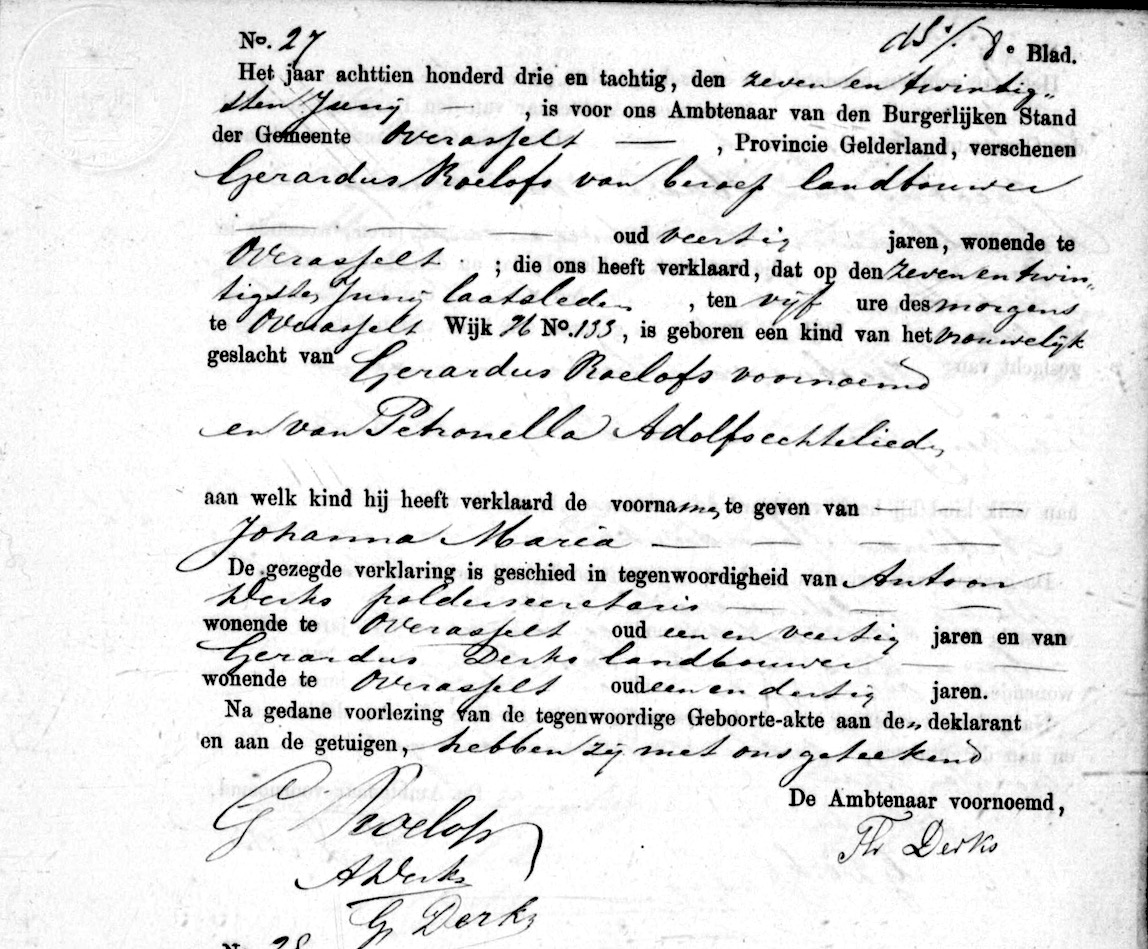 No. 27 8e Blad.
Het jaar achttien honderd drie en tachtig, den zeven en twintig
sten Junij , is voor ons Ambtenaar van den Burgerlijken Stand
der Gemeente Overasselt — , Provincie Gelderland, verschenen
Gerardus Roelofs van beroep landbouwer
— oud veertig jaren, wonende te
Overasselt ; die ons heeft verklaard, dat op den zeven en twin„
tigsten Junij laatsleden , ten vijf ure des morgens
te Overasselt Wijk No. 133, is geboren een kind van het vrouwelijk
geslacht van Gerardus Roelofs voornoemd
en van Petronella Adolfs echtelieden
aan welk kind hij heeft verklaard de voornamen te geven van —
Johanna Maria — — — —
De gezegde verklaring is geschied in tegenwoordigheid van Antoon
Derks poldersecretaris — — —
wonende te Overasselt oud een en veertig jaren en van
Gerardus Derks landbouwer
wonende te Overasselt oud een en dertig jaren.
Na gedane voorlezing van de tegenwoordige Geboorte-akte aan den deklarant
en aan de getuigen, hebben zij met ons geteekend
De Ambtenaar voornoemd,
G Roelofs
Th Derks
A Derks
G Derks
No. 28